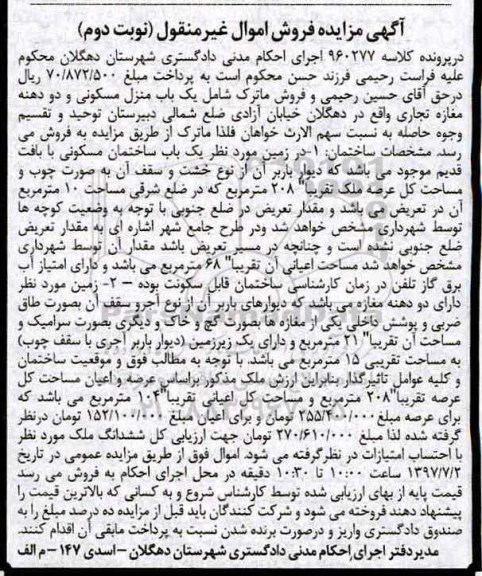 آگهی مزایده فروش اموال غیرمنقول (نوبت دوم)
درپرونده کلاسه ۹۶۰۲۷۷ اجرای احکام مدنی دادگستری شهرستان دهگلان محکوم
علیه فراست رحیمی فرزند حسن محکوم است به پرداخت مبلغ ۷۰/۸۷۲/۵۰۰ ریال
درحق آقای حسین رحیمی و فروش ماترک شامل یک باب منزل مسکونی و دو دهنه
مغازه تجاری واقع در دهگلان خیابان آزادی ضلع شمالی دبیرستان توحید و تقسیم
وجوه حاصله به نسبت سهم الارث خواهان فلذا ماترک از طریق مزایده به فروش می
رسد. مشخصات ساختمان: ۱-در زمین مورد نظر یک باب ساختمان مسکونی با بافت
قدیم موجود می باشد که دیوار باربر آن از نوع خشت و سقف آن به صورت چوب و
مساحت کل عرصه ملک تقریبا" ۲۰۸ مترمربع که در ضلع شرقی مساحت ۱۰ مترمربع
آن در تعریض می باشد و مقدار تعریض در ضلع جنوبی با توجه به وضعیت کوچه ها
توسط شهرداری مشخص خواهد شد ودر طرح جامع شهر اشاره ای به مقدار تعریض
ضلع جنوبی نشده است و چنانچه در مسیر تعریض باشد مقدار آن توسط شهرداری
مشخص خواهد شد مساحت اعیانی آن تقریبا" ۶۸ مترمربع می باشد و دارای امتیاز آب
برق گاز تلفن در زمان کارشناسی ساختمان قابل سکونت بوده – ۲- زمین مورد نظر
دارای دو دهنه مغازه می باشد که دیوارهای باربر آن از نوع آجرو سقف آن بصورت طاق
ضربی و پوشش داخلی یکی از مغازه ها بصورت گچ و خاک و دیگری بصورت سرامیک و
مساحت آن تقریبا" ۲۱ مترمربع و دارای یک زیرزمین (دیوار باربر آجری با سقف چوب)
به مساحت تقریبی ۱۵ مترمربع می باشد. با توجه به مطالب فوق و موقعیت ساختمان
و کلیه عوامل تاثیرگذار بنابراین ارزش ملک مذکور براساس عرصه و اعیان مساحت کل
عرصه تقریبا"۲۰۸ مترمربع و مساحت کل اعیانی تقریبا"۱۰۴ مترمربع می باشد که
برای عرصه مبلغ ۲۵۵/۴۰۰/۰۰۰ تومان و برای اعیان مبلغ ۱۵۲/۱۰۰/۰۰۰ تومان درنظر
گرفته شده لذا مبلغ ۲۷۰/۶۱۰/۰۰۰ تومان جهت ارزیابی کل ششدانگ ملک مورد نظر
با احتساب امتیازات در نظرگرفته می شود. اموال فوق از طریق مزایده عمومی در تاریخ
۱۳۹۷/۷/۲ ساعت ۱۰:۰۰ تا ۱۰:۳۰ دقیقه در محل اجرای احکام به فروش می رسد
قیمت پایه از بهای ارزیابی شده توسط کارشناس شروع و به کسانی که بالاترین قیمت را
پیشنهاد دهند فروخته می شود و شرکت کنندگان باید قبل از مزایده ده درصد مبلغ را به
صندوق دادگستری واریز و درصورت برنده شدن نسبت به پرداخت مابقی آن اقدام کنند.
مدیردفتر اجرای احکام مدنی دادگستری شهرستان دهگلان – اسدی ۱۴۷ – م الف